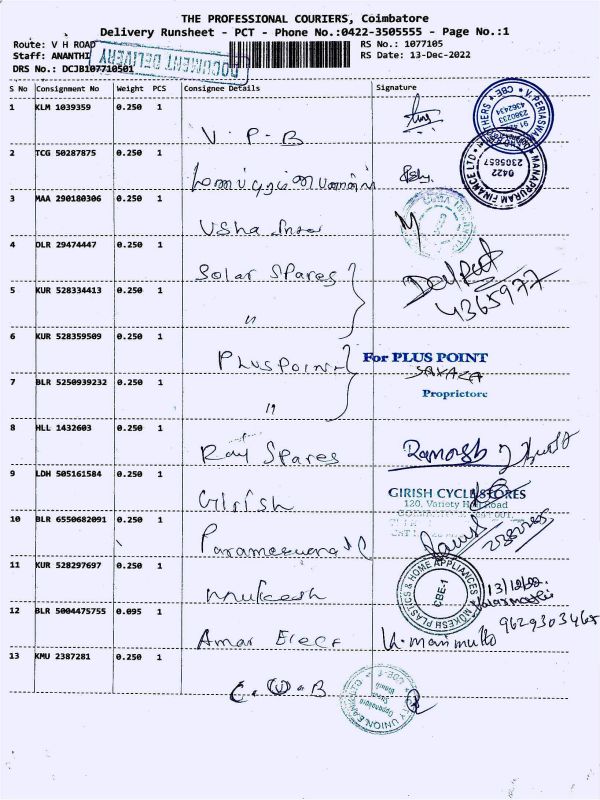 THE PROFESSIONAL COURIERS, Coimbatore
Delivery Runsheet - PCT - Phone No.:0422-3505555 - Page No.:1
Route: V H ROAD
RS No.: 1077105
Staff: ANANTHI
RS Date: 13-Dec-2022
DRS No.: DCJB107710501
DOCUMENT DELIVERY
S No Consignment No Weight PCS Consignee Details Signature
1 KLM 1039359 0.250 1 V.P.B
2 TCG 50287875 0.250 1
MANAPPURAM FINANCE LTD
0422
3 MAA 290180306 0.250 1 Usha
4 DLR 29474447 0.250 1 Solar Spares
4365977
5 KUR 528334413 0.250 1 "
6 KUR 528359509 0.250 1 PLUSPOINT
For PLUS POINT
Proprietore
7 BLR 5250939232 0.250 1 "
8 HLL 1432603 0.250 1 Ray Spares Ramesh
9 LDH 505161584 0.250 1 Girish
GIRISH CYCLE STORES
120, Variety Hall Road
10 BLR 6550682091 0.250 1 Parameswara
11 KUR 528297697 0.250 1 Mukesh
MUKESH PLASTICS & HOME APPLIANCES
CBE-1
13/12/22
12 BLR 5004475755 0.095 1 Amar Elect K. marimuttu
9629303467
13 KMU 2387281 0.250 1 C.U.B